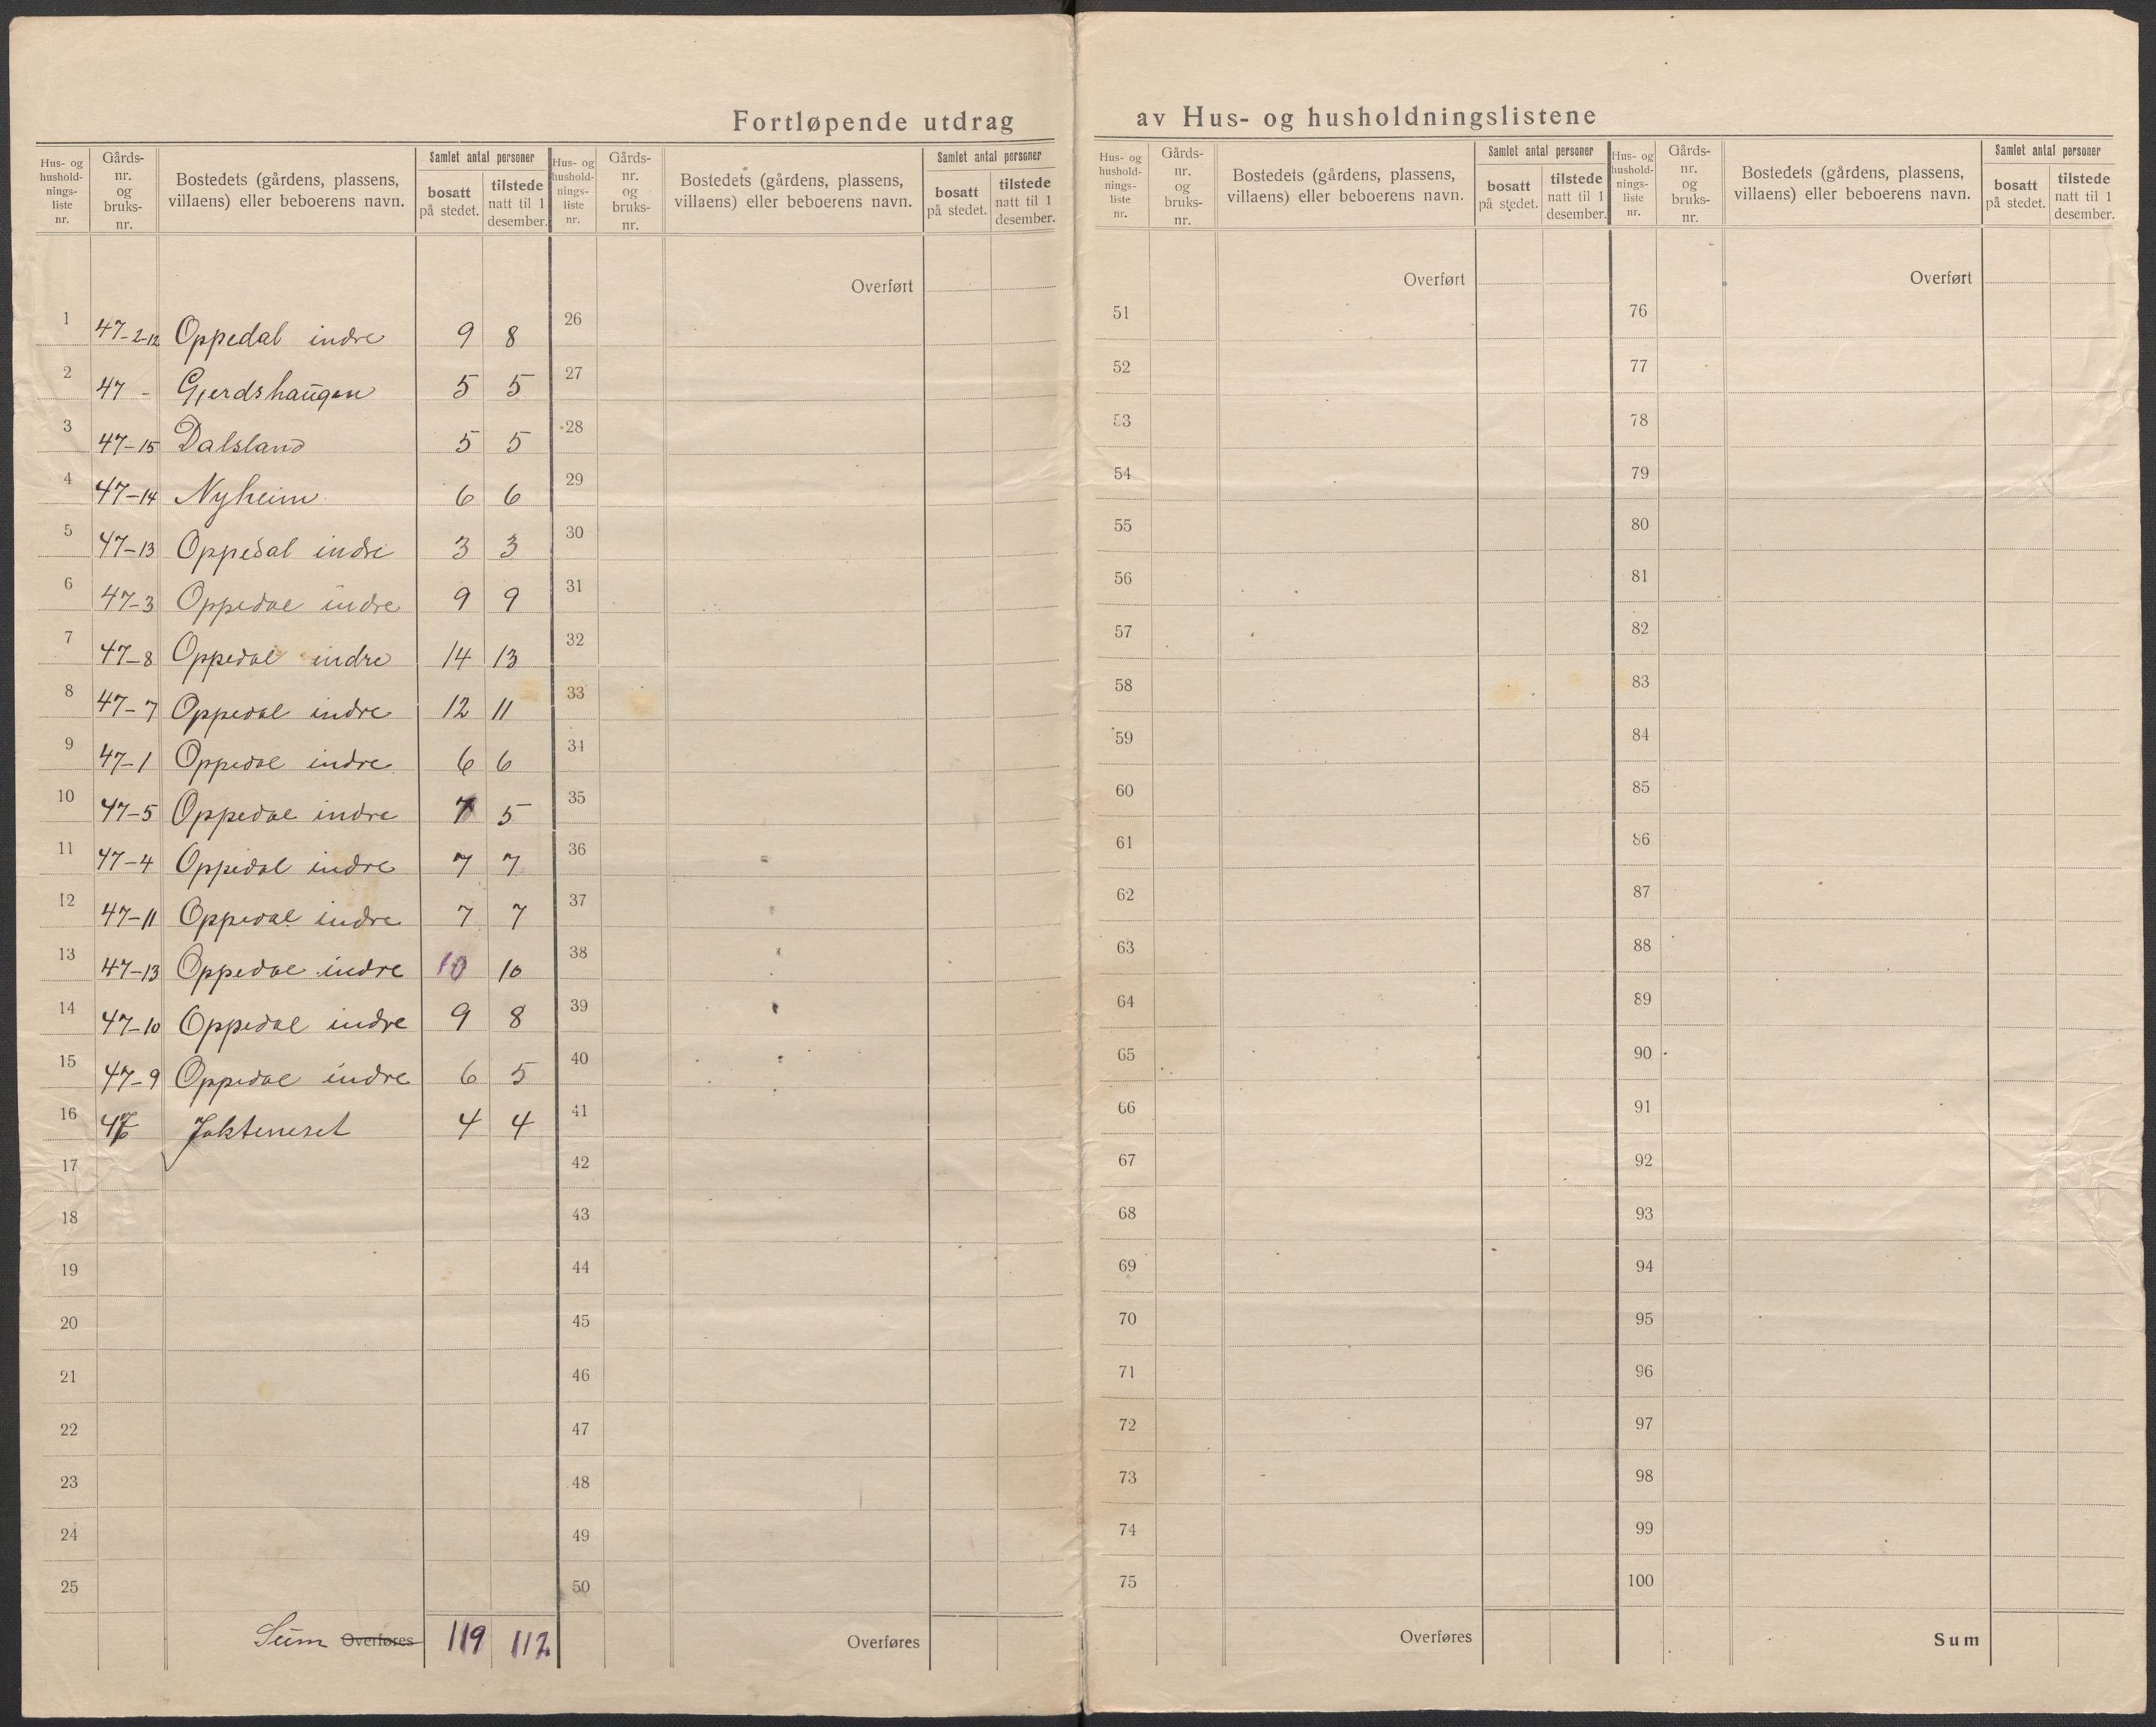 Fortløpende utdrag av Hus- og husholdningslistene
Hus- og hushold-nings-liste nr. Gårds-nr. og bruks-nr. Bostedets (gårdens, plassens, villaens) eller beboerens navn. Samlet antal personer bosatt på stedet. tilstede natt til 1 desember.
1 47-2-12 Oppedal indre 9 8
2 47 - Gjerdshaugen 5 5
3 47-15 Dalsland 5 5
4 47-14 Nyheim 6 6
5 47-13 Oppedal indre 3 3
6 47-3 Oppedal indre 9 9
7 47-8 Oppedal indre 14 13
8 47-7 Oppedal indre 12 11
9 47-1 Oppedal indre 6 6
10 47-5 Oppedal indre 7 5
11 47-4 Oppedal indre 7 7
12 47-11 Oppedal indre 7 7
13 47-13 Oppedal indre 10 10
14 47-10 Oppedal indre 9 8
15 47-9 Oppedal indre 6 5
16 Jakteneset 4 4
17
18
19
20
21
22
23
24
25
Sum Overføres 119 112
Hus- og hushold-nings-liste nr. Gårds-nr. og bruks-nr. Bostedets (gårdens, plassens, villaens) eller beboerens navn. Samlet antal personer bosatt på stedet. tilstede natt til 1 desember.
Overført
26
27
28
29
30
31
32
33
34
35
36
37
38
39
40
41
42
43
44
45
46
47
48
49
50
Overføres
Hus- og hushold-nings-liste nr. Gårds-nr. og bruks-nr. Bostedets (gårdens, plassens, villaens) eller beboerens navn. Samlet antal personer bosatt på stedet. tilstede natt til 1 desember.
Overført
51
52
53
54
55
56
57
58
59
60
61
62
63
64
65
66
67
68
69
70
71
72
73
74
75
Overføres
Hus- og hushold-nings-liste nr. Gårds-nr. og bruks-nr. Bostedets (gårdens, plassens, villaens) eller beboerens navn. Samlet antal personer bosatt på stedet. tilstede natt til 1 desember.
Overført
76
77
78
79
80
81
82
83
84
85
86
87
88
89
90
91
92
93
94
95
96
97
98
99
100
Sum